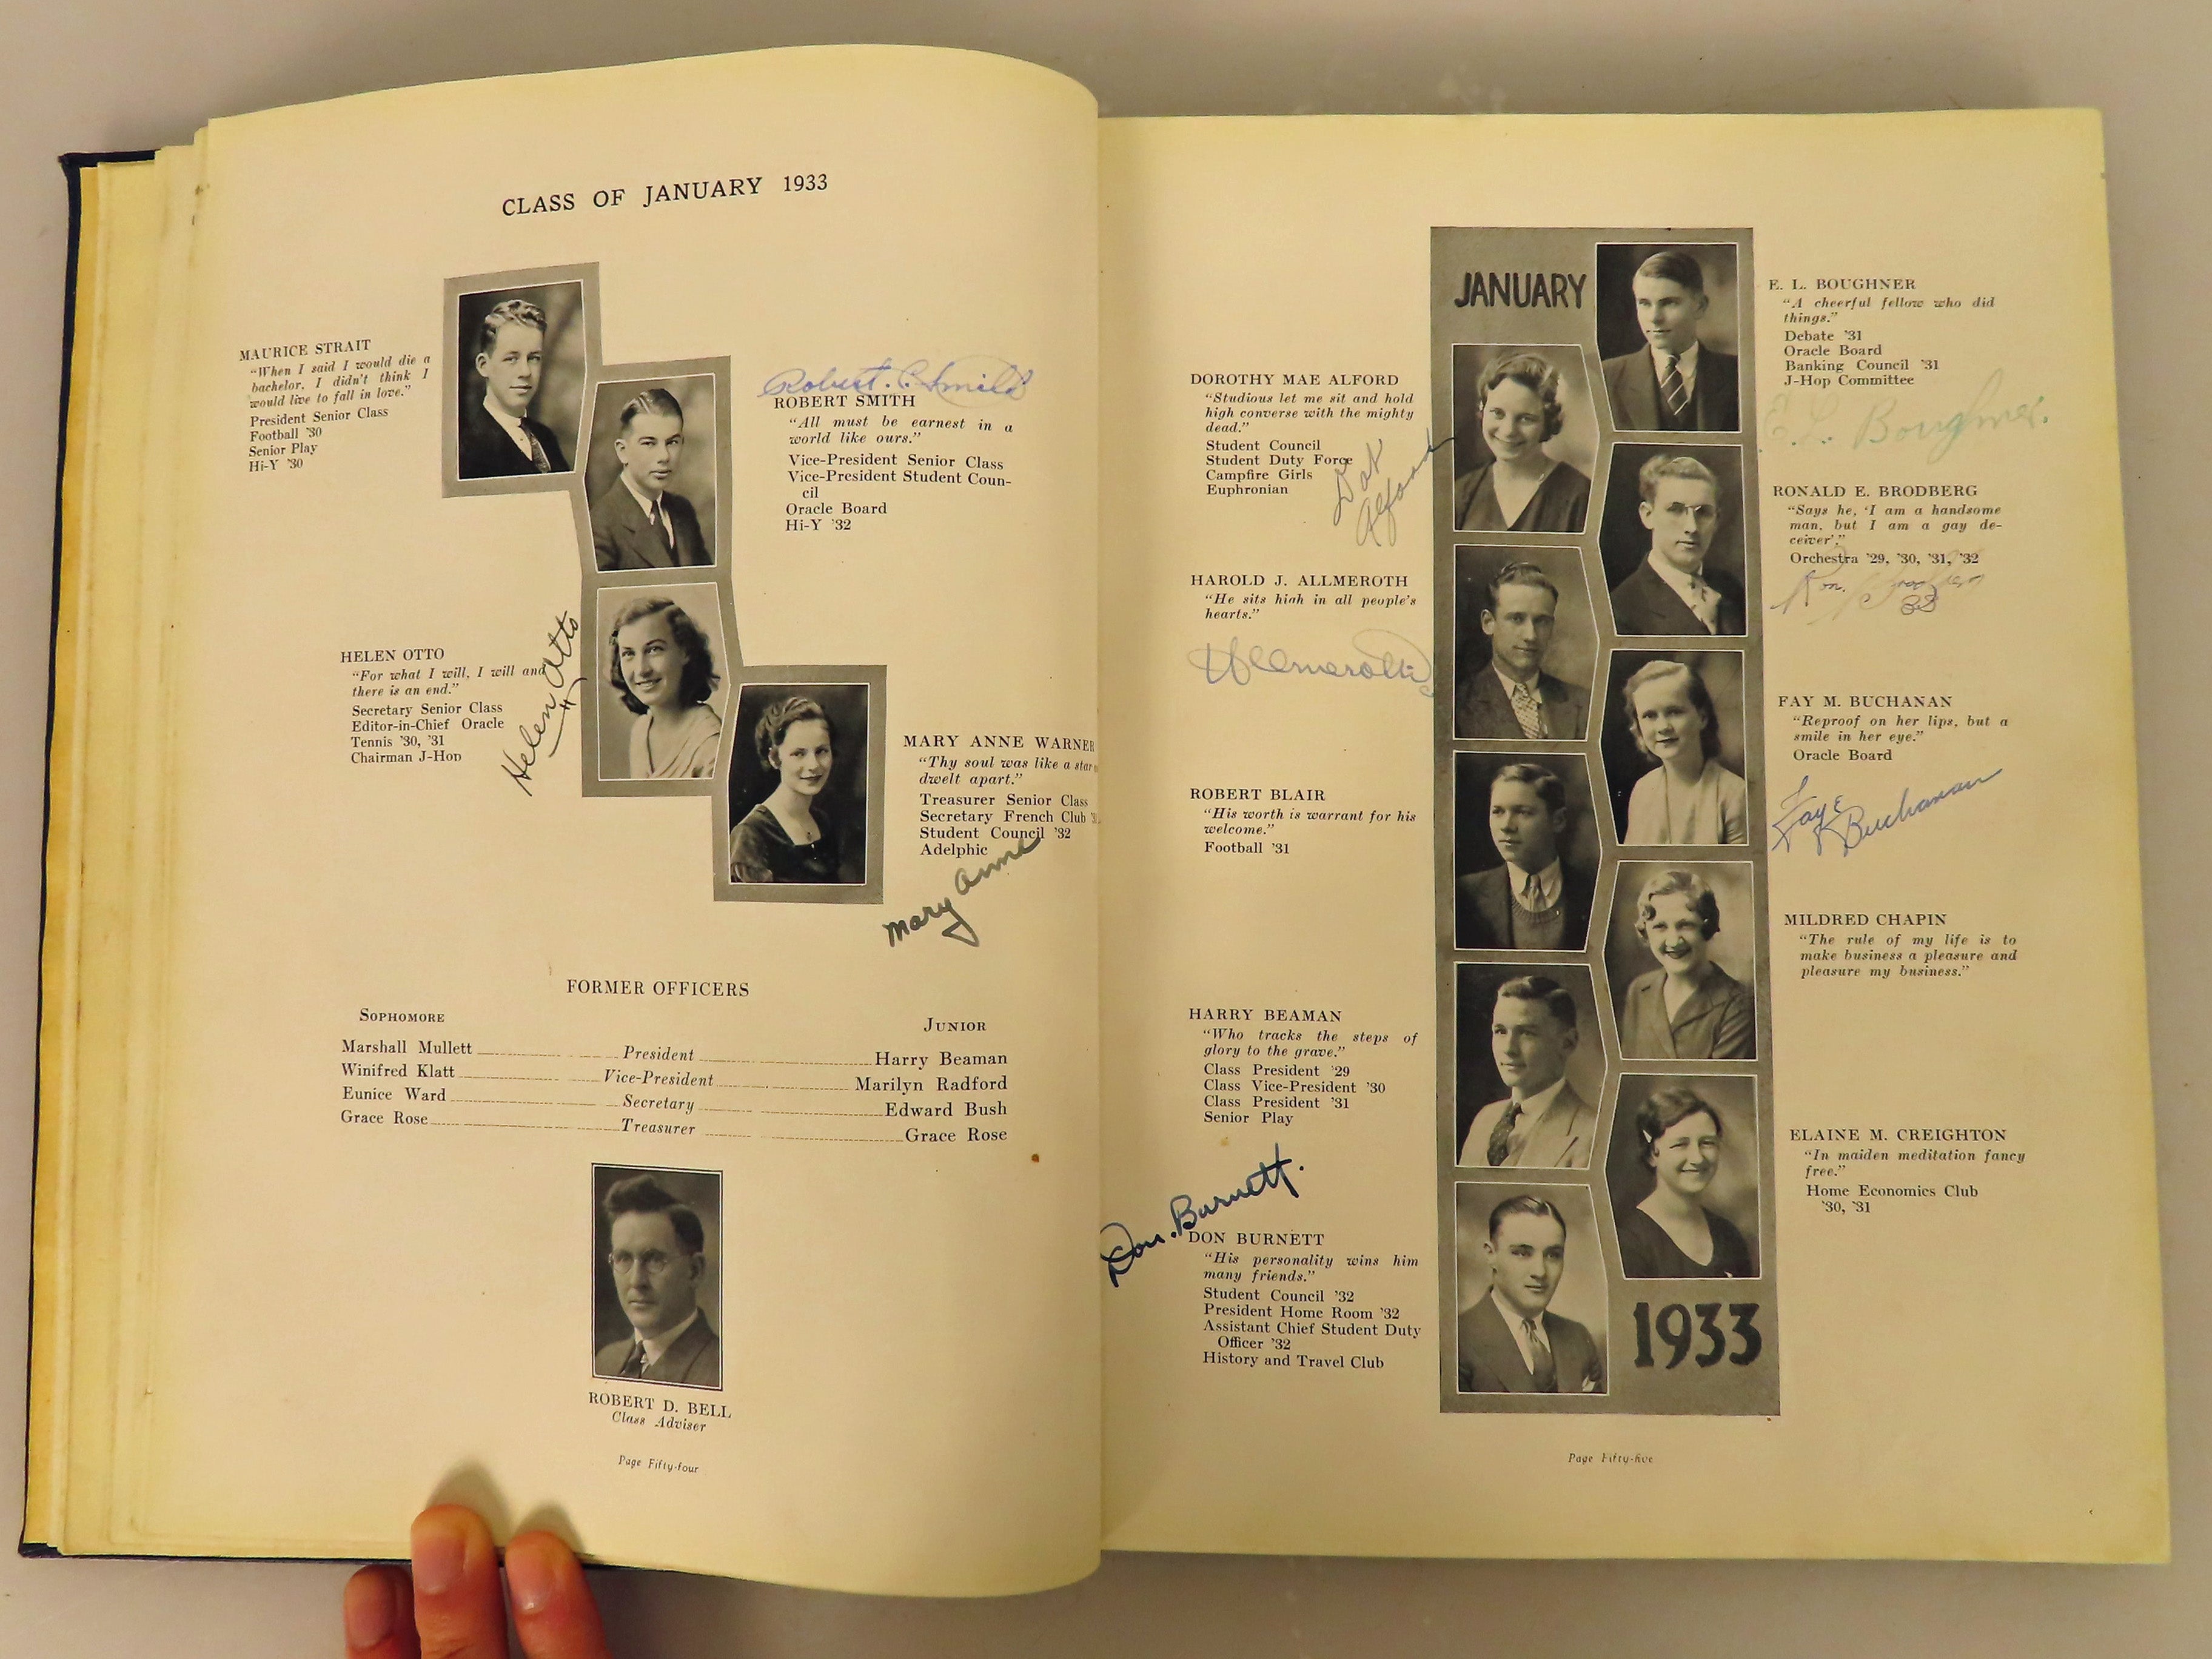 CLASS OF JANUARY 1933
MAURICE STRAIT
"When I said I would die a
bachelor, I didn't think I
would live to fall in love."
President Senior Class
Football '30
Senior Play
Hi-Y '30
Robert. C. Smith
ROBERT SMITH
"All must be earnest in a
world like ours."
Vice-President Senior Class
Vice-President Student Coun-
cil
Oracle Board
Hi-Y '32
HELEN OTTO
"For what I will, I will and
there is an end."
Secretary Senior Class
Editor-in-Chief Oracle
Tennis '30, '31
Chairman J-Hop
Helen Otto
MARY ANNE WARNER
"Thy soul was like a star
dwelt apart."
Treasurer Senior Class
Secretary French Club
Student Council '32
Adelphic
Mary Anne
FORMER OFFICERS
SOPHOMORE JUNIOR
Marshall Mullett President Harry Beaman
Winifred Klatt Vice-President Marilyn Radford
Eunice Ward Secretary Edward Bush
Grace Rose Treasurer Grace Rose
ROBERT D. BELL
Class Adviser
Page Fifty-four
JANUARY
DOROTHY MAE ALFORD
"Studious let me sit and hold
high converse with the mighty
dead."
Student Council
Student Duty Force
Campfire Girls
Euphronian
Dot
Alford
HAROLD J. ALLMEROTH
"He sits high in all people's
hearts."
ROBERT BLAIR
"His worth is warrant for his
welcome."
Football '31
HARRY BEAMAN
"Who tracks the steps of
glory to the grave."
Class President '29
Class Vice-President '30
Class President '31
Senior Play
Don. Burnett.
DON BURNETT
"His personality wins him
many friends."
Student Council '32
President Home Room '32
Assistant Chief Student Duty
Officer '32
History and Travel Club
E. L. BOUGHNER
"A cheerful fellow who did
things."
Debate '31
Oracle Board
Banking Council '31
J-Hop Committee
E. L. Boughner.
RONALD E. BRODBERG
"Says he, 'I am a handsome
man, but I am a gay de-
ceiver'."
Orchestra '29, '30, '31, '32
Ron.
33
FAY M. BUCHANAN
"Reproof on her lips, but a
smile in her eye."
Oracle Board
Faye
Buchanan
MILDRED CHAPIN
"The rule of my life is to
make business a pleasure and
pleasure my business."
ELAINE M. CREIGHTON
"In maiden meditation fancy
free."
Home Economics Club
'30, '31
1933
Page Fifty-five